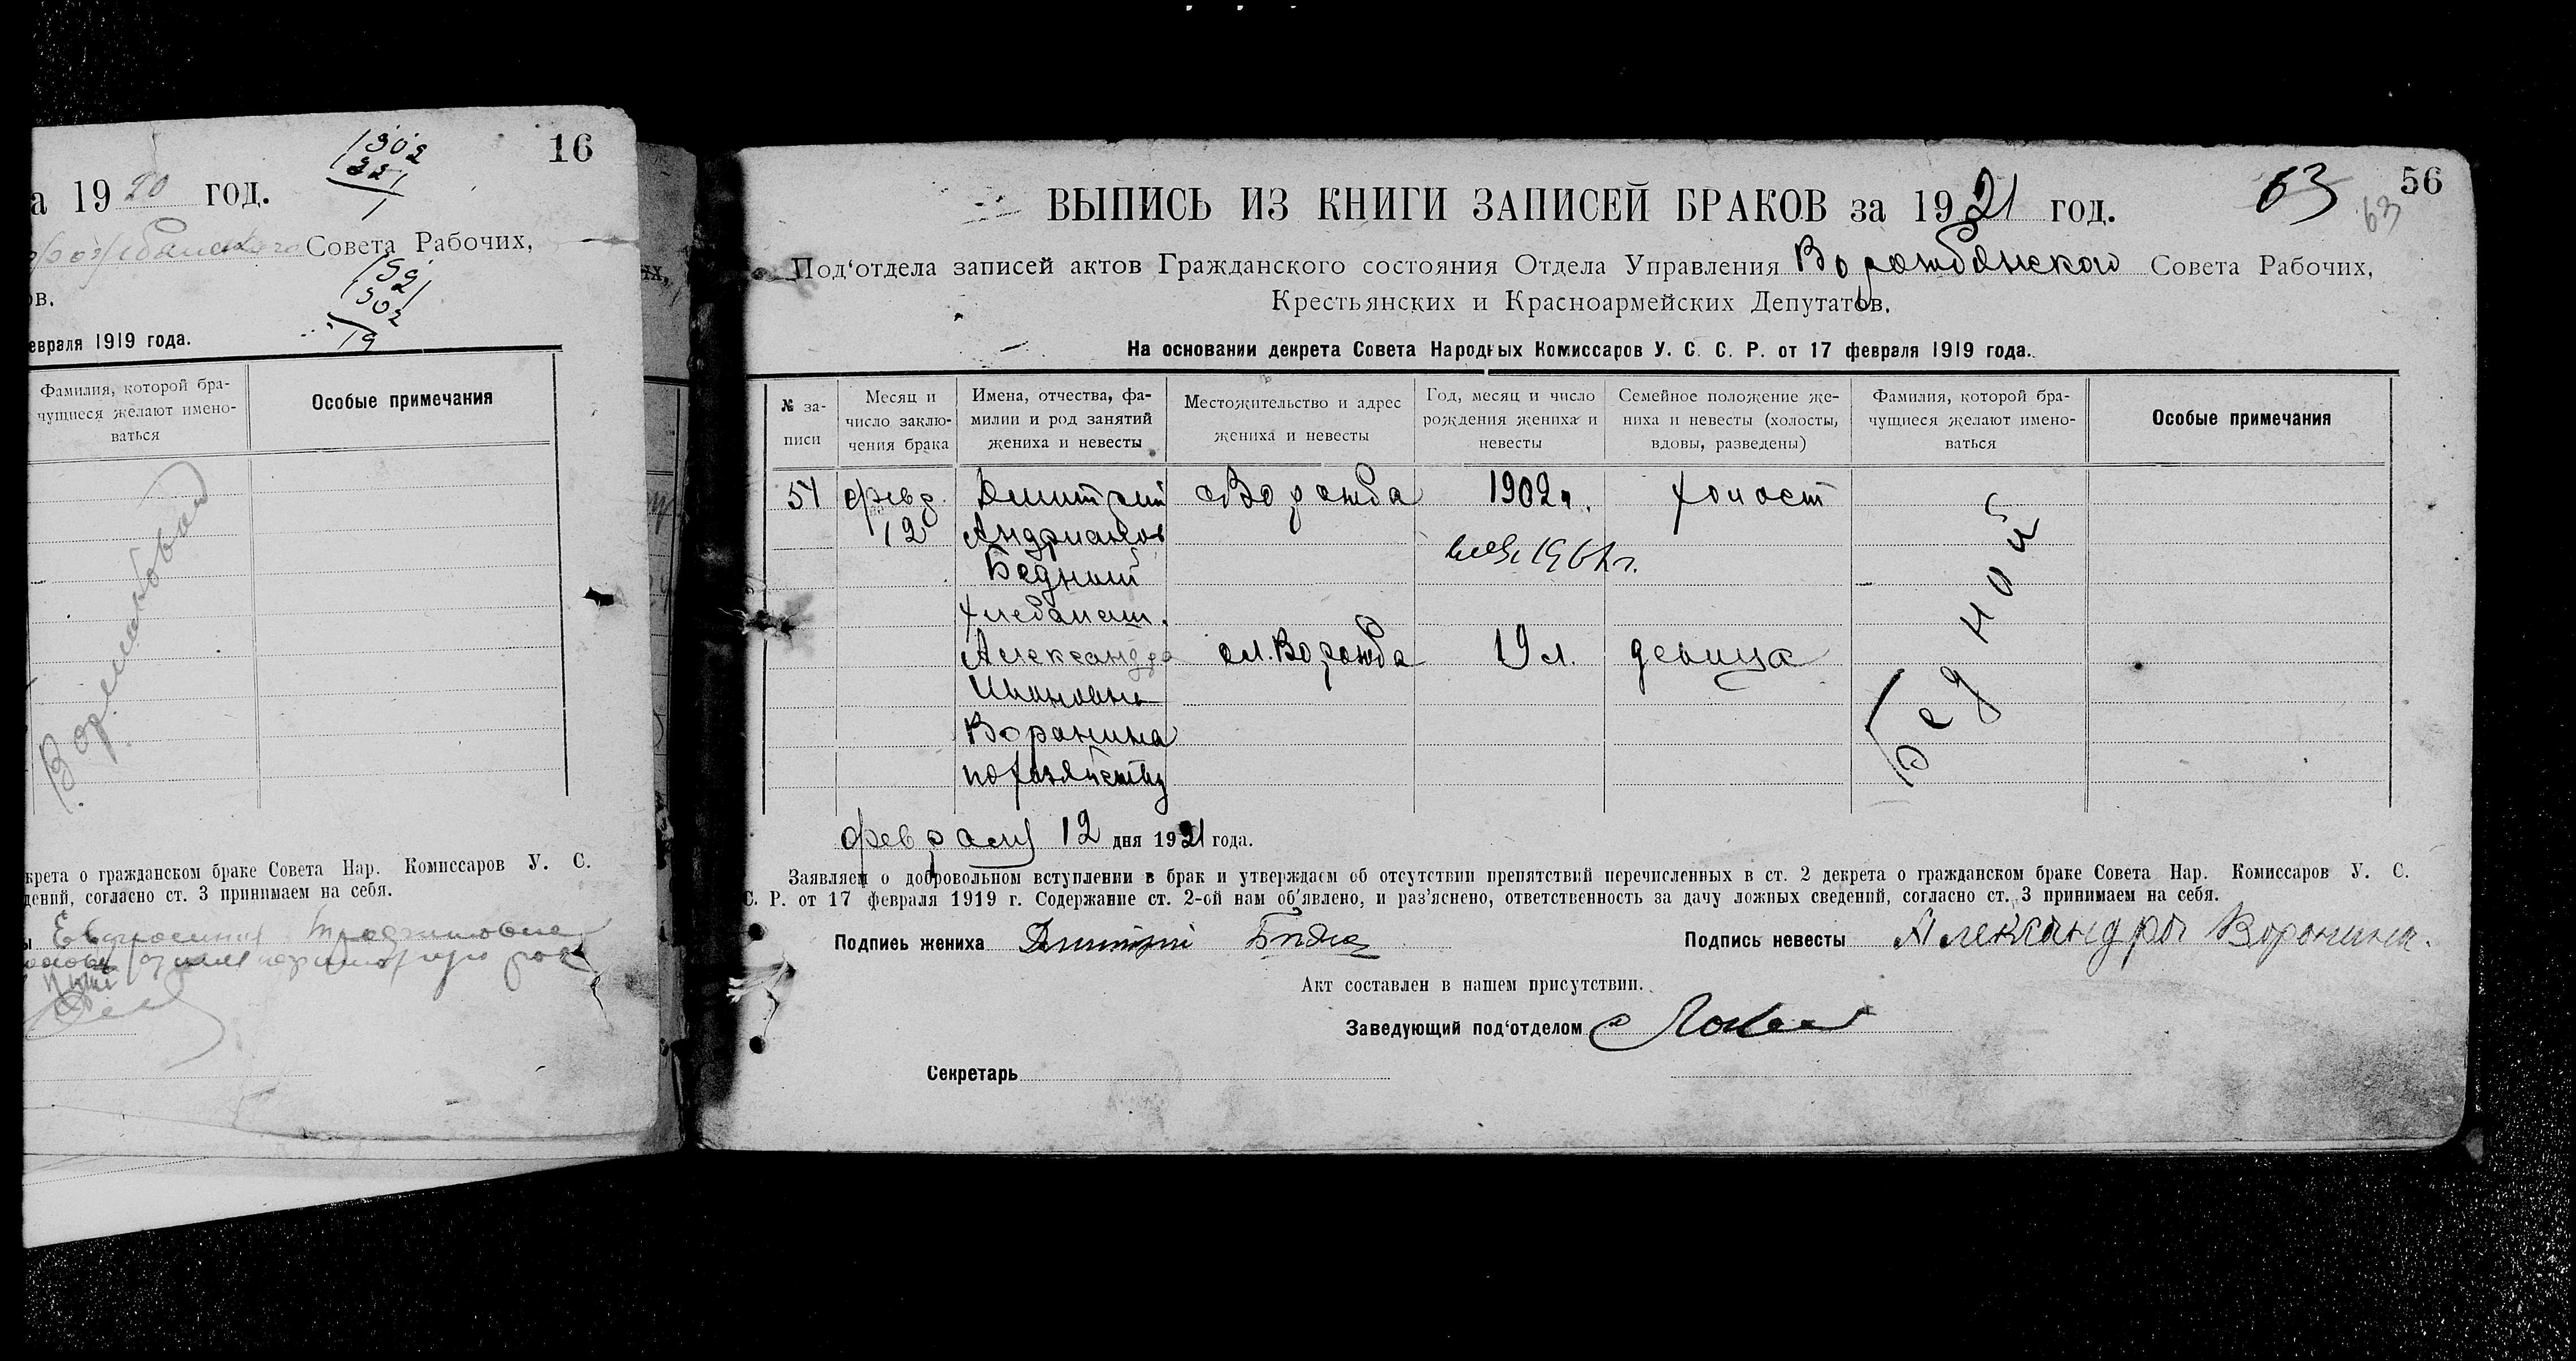 16
а 1920 год.
1902
221
1
Совета Рабочих,
ов.
1921
1902
19
евраля 1919 года.
Фамилия, которой бра-
чущиеся желают имено-
ваться
Особые примечания
крета о гражданском браке Совета Нар. Комиссаров У. С.
дений, согласно ст. 3 принимаем на себя.
их,
56
63
63
ВЫПИСЬ ИЗ КНИГИ ЗАПИСЕЙ БРАКОВ за 1921 год.
Под‘отдела записей актов Гражданского состояния Отдела Управления Ворожбянского Совета Рабочих,
Крестьянских и Красноармейских Депутатов.
На основании декрета Совета Народных Комиссаров У. С. С. Р. от 17 февраля 1919 года.
№ за-
писи
Месяц и
число заклю-
чения брака
Имена, отчества, фа-
милии и род занятий
жениха и невесты
Местожительство и адрес
жениха и невесты
Год, месяц и число
рождения жениха и
невесты
Семейное положение же-
ниха и невесты (холосты,
вдовы, разведены)
Фамилия, которой бра-
чущиеся желают имено-
ваться
Особые примечания
51 февр. Дмитрий с Ворожба 1902 г. холост
12 Андрианов
Бедный
хлебопаш.
Александра сл. Ворожба 19 л. девица
Ивановна
Воронина
по хозяйству
Бедный
февраля 12 дня 1921 года.
Заявляем о добровольном вступлении в брак и утверждаем об отсутствии препятствий перечисленных в ст. 2 декрета о гражданском браке Совета Нар. Комиссаров У. С.
С. Р. от 17 февраля 1919 г. Содержание ст. 2-ой нам об'явлено, и раз'яснено, ответственность за дачу ложных сведений, согласно ст. 3 принимаем на себя.
Подпись жениха Дмитрий
Подпись невесты Александра Воронина.
Акт составлен в нашем присутствии.
Заведующий под‘отделом
Секретарь